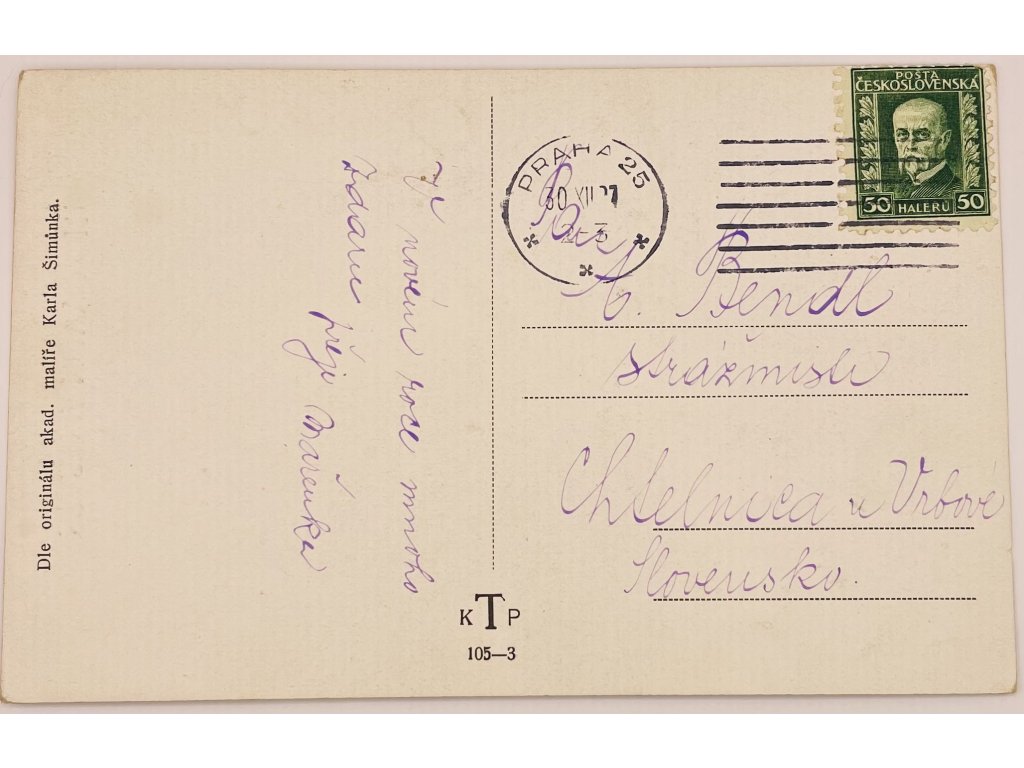 Dle originálu akad. malíře Karla Šimůnka.
V novém roce mnoho
zdaru přeje Mařenka
K T P
105—3
PRAHA 25
30 XII 27
POŠTA
ČESKOSLOVENSKÁ
50 HALÉŘŮ 50
Pan
A. Bendl
strážmistr
Chtelnica u Vrbové
Slovensko.